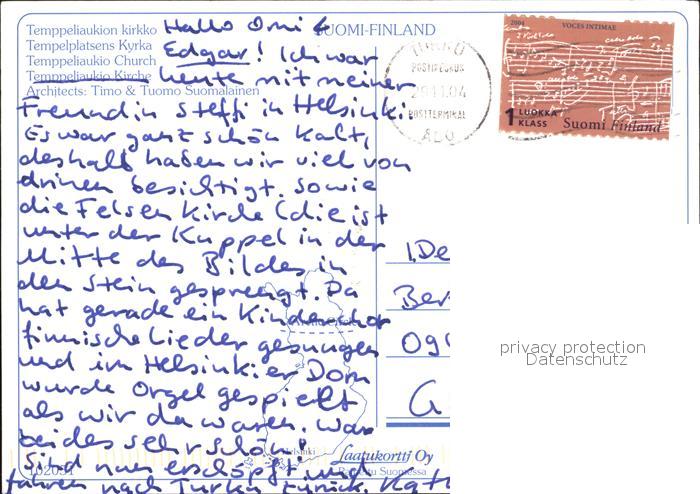 Temppeliaukion kirkko
Tempelplatsens Kyrka
Temppeliaukio Church
Temppeliaukio Kirche
Architects: Timo & Tuomo Suomalainen
SUOMI-FINLAND
Hallo Omi &
Edgar! Ich war
heute mit meiner
Freundin Steffi in Helsinki.
Es war ganz schön kalt,
deshalb haben wir viel von
drinen besichtigt. Sowie
die Felsen Kirche (die ist
unter der Kuppel in der
Mitte des Bildes in
den Stein gesprengt. Da
hat gerade ein Kinderchor
finnische Lieder gesungen
und im Helsinkier Dom
wurde Orgel gespielt
als wir da waren. War
beides sehr schön!
Sind nun erschöpft und
fahren nach Turku zurück. Kath
TURKU
POSTIKESKUS
29.11.04
POSTTERMINAL
ÅBO
2004
VOCES INTIMAE
1 LUOKKA
KLASS
Suomi Finland
I.De
Ber
09
G
privacy protection
Datenschutz
Arctic Circle
Helsinki
Laatukortti Oy
Painettu Suomessa
102051